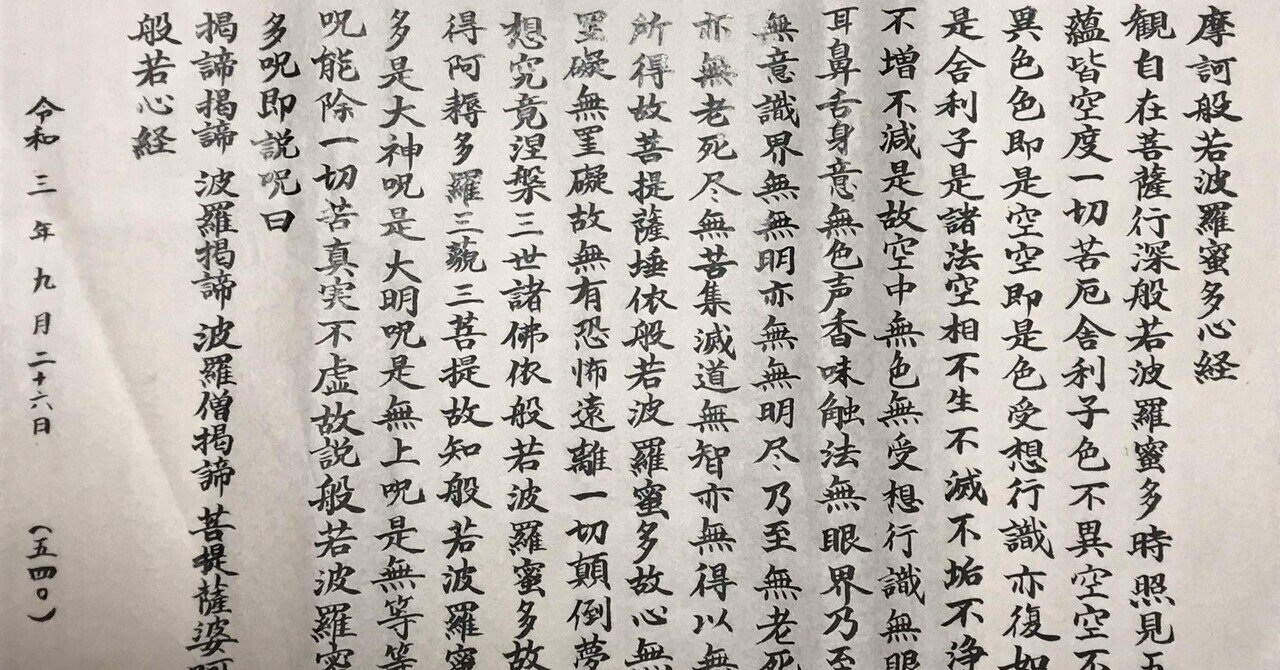 摩訶般若波羅蜜多心経
観自在菩薩行深般若波羅蜜多時照見五
蘊皆空度一切苦厄舎利子色不異空空不
異色色即是空空即是色受想行識亦復如
是舎利子是諸法空相不生不滅不垢不浄
不増不減是故空中無色無受想行識無眼
耳鼻舌身意無色声香味触法無眼界乃至
無意識界無無明亦無無明尽乃至無老死
亦無老死尽無苦集滅道無智亦無得以無
所得故菩提薩埵依般若波羅蜜多故心無
罣礙無罣礙故無有恐怖遠離一切顛倒夢
想究竟涅槃三世諸佛依般若波羅蜜多故
得阿耨多羅三藐三菩提故知般若波羅蜜
多是大神呪是大明呪是無上呪是無等等
呪能除一切苦真実不虚故説般若波羅蜜
多呪即説呪曰
揭諦揭諦 波羅揭諦 波羅僧揭諦 菩提薩婆訶
般若心経
令和三年九月二十六日 (五四〇)